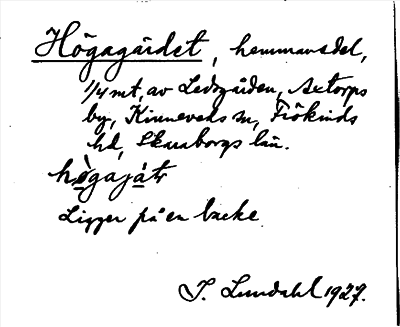 Högagärdet, hemmansdel,
1/4 mt, av Ledsgården, Axtorps
by, Kinneveds sn, Frökinds
hd, Skaraborgs län.
hògajátr
Ligger på en backe
I. Lundahl 1927.